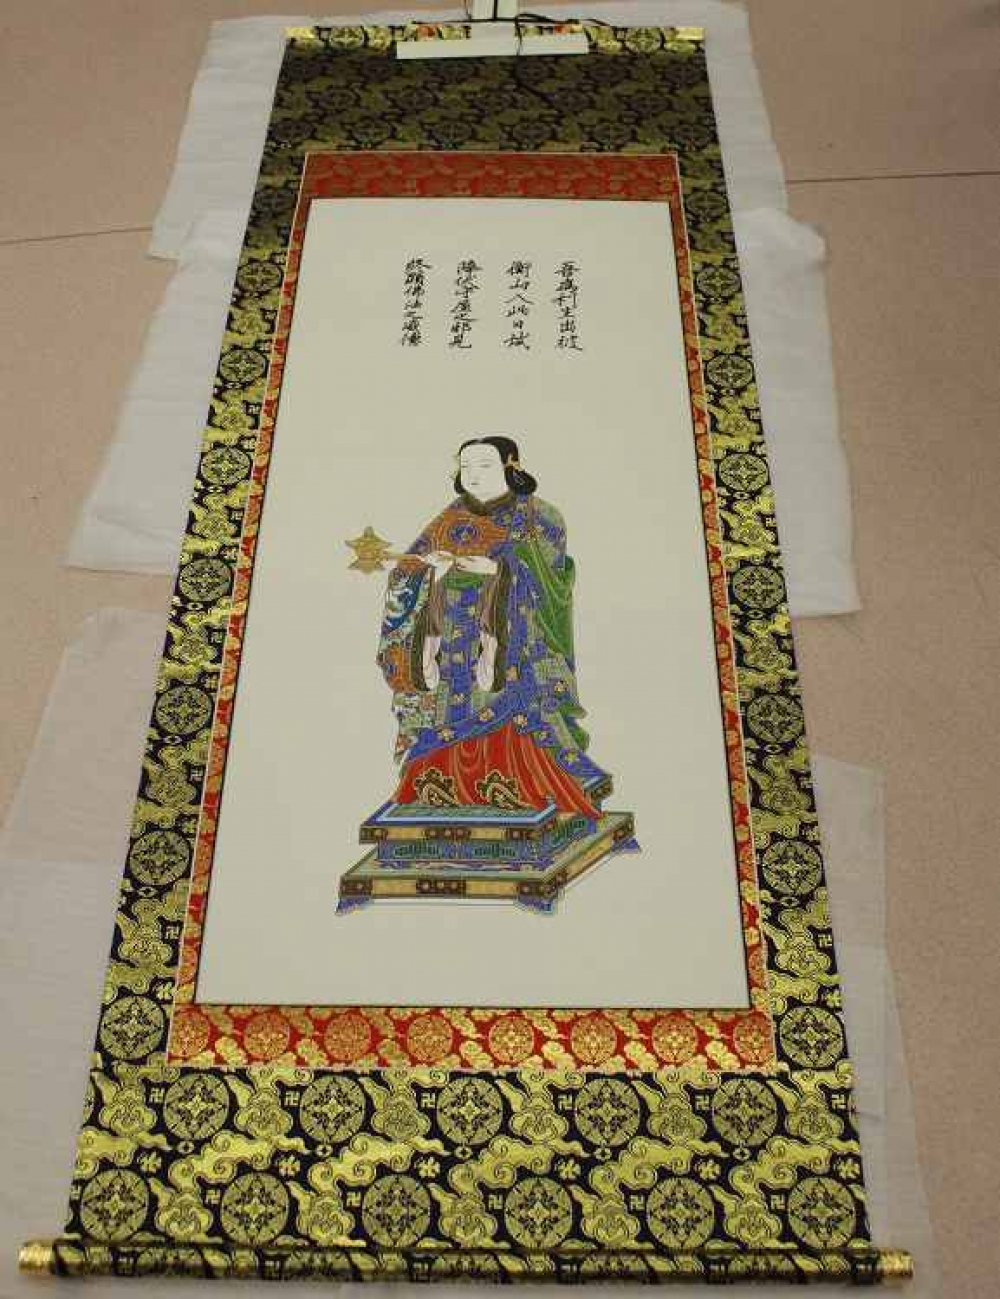 吾為利生出彼
衡山入此日域
降伏守屋之邪見
終顕佛法之威德